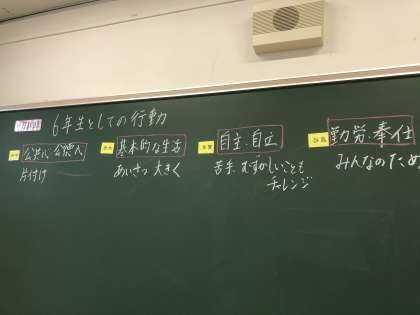 6年生としての行動
公共心 公徳心
片付け
基本的な生活
あいさつ 大きく
自主・自立
苦手、むずかしいことも
チャレンジ
勤労・奉仕
みんなのため